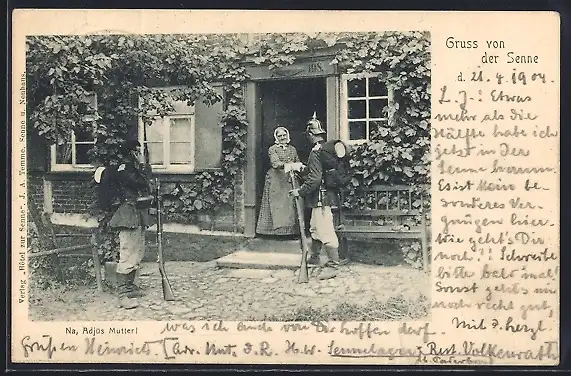 Gruss von
der Senne
d. 21. 4. 1904
L. J.! Etwas
mehr als die
Hälfte habe ich
jetzt in der
Senne herum.
Es ist kein be-
sonderes Ver-
gnügen hier.
Wie geht's Dir
noch?! Schreibe
bitte bald mal!
Sonst geht's mir
noch recht gut,
was ich auch von Dir hoffen darf. Mit d. herzl.
Grüßen Heinrich
Adr. Unt. d. R. H. Sennelager, Rest. Volkenrath
b. Paderborn
Na, Adjös Mutter!
Verlag „Hôtel zur Senne“, J. A. Temme, Senne u. Neuhaus.